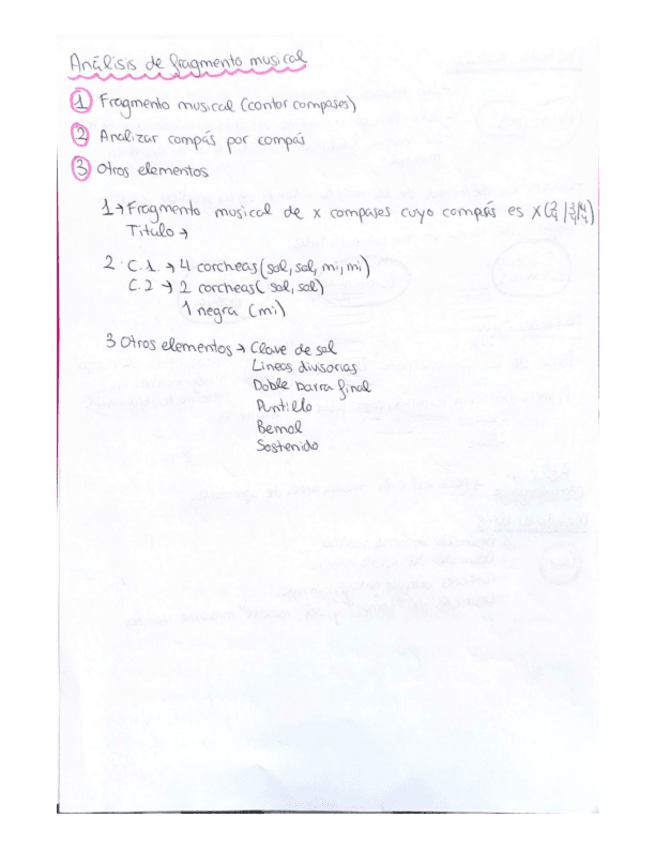 Análisis de fragmento musical
1 Fragmento musical (contar compases)
2 Analizar compás por compás
3 Otros elementos
1→ Fragmento musical de x compases cuyo compás es x (2/4 | 3/4 | 4/4)
Titulo →
2. C.1. → 4 corcheas (sol, sol, mi, mi)
C.2 → 2 corcheas (sol, sol)
1 negra (mi)
3 Otros elementos → Clave de sol
Lineas divisorias
Doble barra final
Puntillo
Bemol
Sostenido